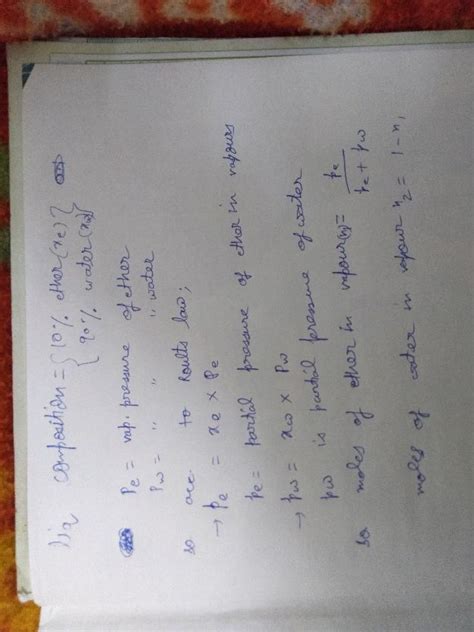 liq composition = { 10% ether (xe) }
{ 90% water (xw) }
Pe = vap. pressure of ether
Pw = " " " water
so acc to Roults law;
→ pe = xe × Pe
pe = partial pressure of ether in vapours
→ pw = xw × Pw
pw is partial pressure of water
so moles of ether in vapour(x1) = pe / pe + pw
moles of water in vapour x2 = 1 - x1